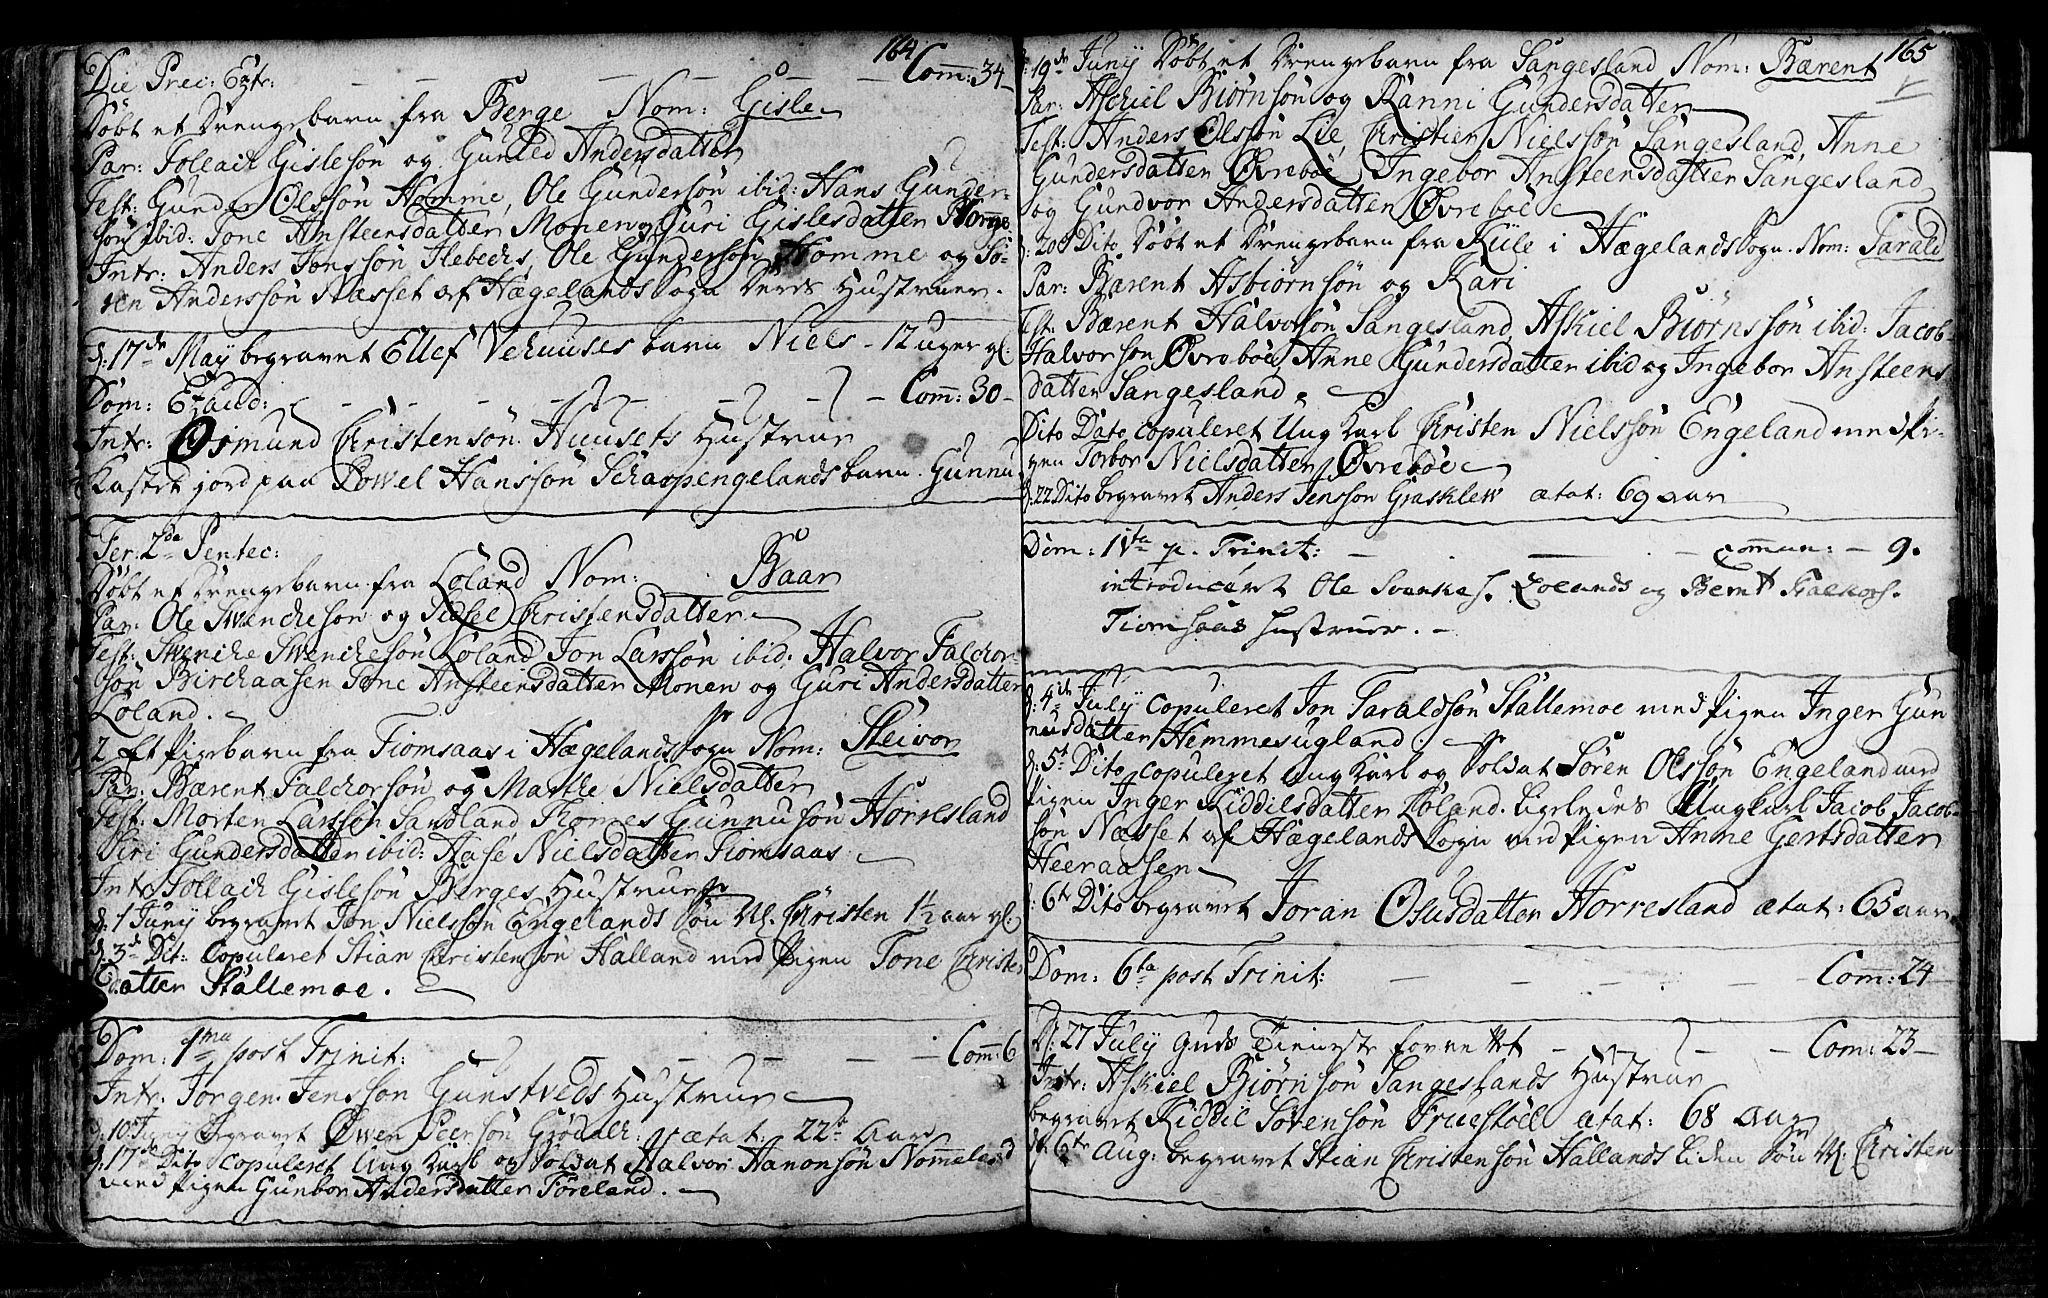 164
Die Prec: Extr: — — — — — Com: 34
Döbt et Drengebarn fra Berge Nom: Gisle
Par: Tollach Gislesön og Gunild Andersdatter
Test: Gunder Olssön Homme, Ole Gundersön ibid: Hans Gunder-
sön ibid: Tone Ansteensdatter Monen og Guri Gislesdatter Homme
Intr: Anders Jonssön Ilebechs, Ole Gundersön Homme og Sö-
ren Anderssön Næsset af Hægelands Sogn Deres Hustruer.
d: 17de May begravet Ellef Vehuuses barn Niels - 12 uger gl:
Dom: Exaud: — — — — — Com: 30 -
Intr: Osmund Christensön Huusets Hustrue
Kastet jord paa Powel Hanssön Schaapengelands barn Gunnu
Fer: 2da Pentec:
Döbt et Drengebarn fra Löland Nom: Baar
Par: Ole Swenchesön og Sidsel Christensdatter
Test: Swenche Swenchesön Löland Jon Larssön ibid: Halvor Falchor-
sön Birchaasen Tone Ansteensdatter Monen og Guri Andersdatter
Löland.
2 Et Pigebarn fra Tiomsaas i Hægelands Sogn Nom: Steivor
Par: Bærent Falchorsön og Marthe Nielsdatter
Test: Morten Larssön Sandland Thomes Gunnusön Horresland
Siri Gundersdatter ibid: Aase Nielsdatter Tiomsaas
Intr: Tollach Gislesön Berges Hustrue
d: 1 Juny begravet Jon Nielssön Engelands Sön N. Christen 1½ aar gl:
d: 3de Dit: Copuleret Stian Christensön Halland med Pigen Tone Christens
datter Stallemoe.
Dom: 1ma post Trinit: — — — — Com: 6
Intr: Jörgen Jenssön Gunstveds Hustrue
d: 10 Juny Begravet Öwen Peersön ætat: 22 Aar
d: 17de Dito copuleret Ung Karl og Soldat Halvor Hanonsön Nommeland
med Pigen Gunbor Andersdatter Föreland.
165
d: 19de Juny Döbt et Drengebarn fra Sangesland Nom: Bærent
Par: Askiel Biörnsön og Ranni Gundersdatter
Test: Anders Olssön Lie, Christen Nielssön Sangesland, Anne
Gundersdatter Øvreböe, Ingebor Ansteensdatter Sangesland
og Gundvor Andersdatter Øvreböe
d: 20 Dito Döbt et Drengebarn fra Kiile i Hægelands Sogn. Nom: Tarald
Par: Bærent Asbiörnsön og Kari
Test: Bærent Halvorsön Sangesland, Askiel Biörnssön ibid: Jacob
Halvorsön Øvreböe, Anne Gundersdatter ibid og Ingebor Ansteens
datter Sangesland.
Dito Dato copuleret Ung Karl Christen Nielssön Engeland med Pi-
gen Torbor Nielsdatter Øvreböe
d: 22 Dito begravet Anders Jenssön Grasklew ætat: 69 aar
Dom: IVta p. Trinit: — — — commun: — 9.
introduceret Ole Svenkes. Lölands og Bernt Falkors.
Tiomsaas hustruer. -
d: 4de July Copuleret Jon Taraldsön Stallemoe med Pigen Inger Gun
nusdatter Hemmesugland.
d: 5t Dito copuleret Ung Karl og Soldat Sören Olssön Engeland med
Pigen Inger Kiddilsdatter Löland. ligeledes Ungkarl Jacob Jacob-
sön Næsset af Hægelands Sogn med Pigen Anne Gertsdatter
Heeraasen
d: 6te Dito begravet Joran Osusdatter Horresland ætat: 65 aar
Dom: 6ta post Trinit: — — — — Com: 24 —
D: 27 July Guds Tieneste forrettet — — — Com: 23 —
Intr: Askiel Biörnsön Sangeslands Hustrue
begravet Kiddil Sörensön Fruestöel ætat: 68 Aar
d: 6te Aug: begravet Stian Christensön Hallands liden Sön N. Christen